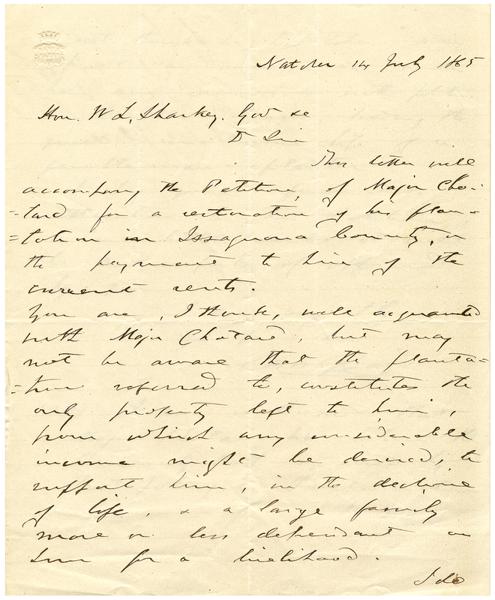 Natchez 14 July 1865
Hon. W L, Sharkey. Gov &c
D Sir
This letter will
accompany the Petition, of Major Cho-
=tard for a restoration of his plan-
=tation in Issaquena County, or
the payment to him of the
current rents.
You are, I think, well acquainted
with Major Chotard, but may
not be aware that the planta-
=tion referred to, constitutes the
only property left to him,
from which any considerable
income might be derived, to
support him, in the decline
of life, & a large family
more or less dependant on
him for a livelihood.
I do